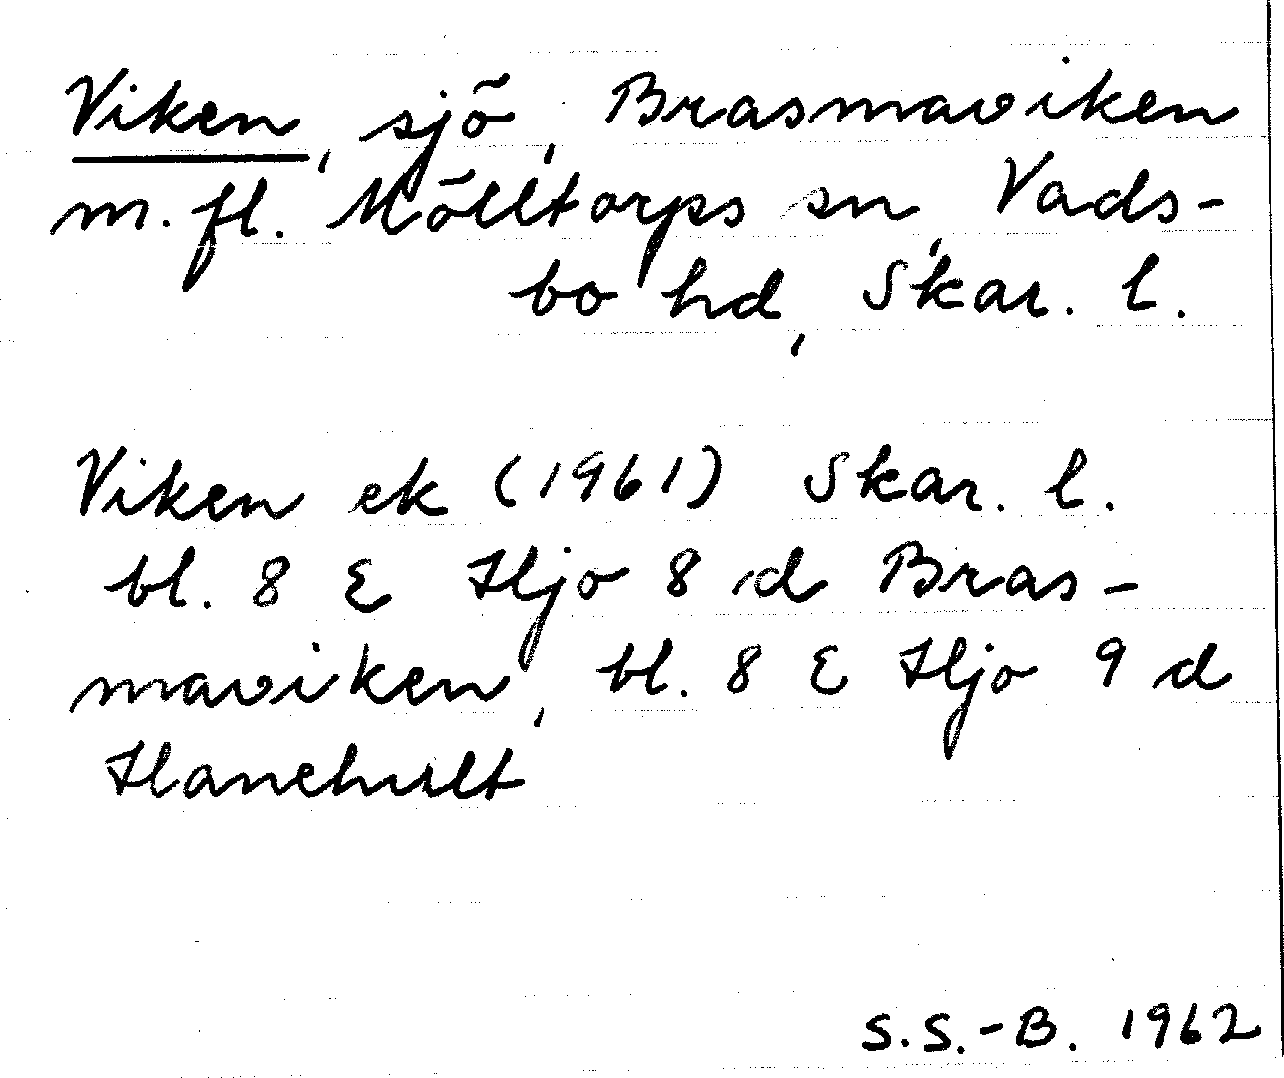 Viken, sjö, Brasmaviken
m. fl. Mölltorps sn, Vads-
bo hd, Skar. l.
Viken ek (1961) Skar. l.
bl. 8 E Hjo 8 d Bras-
maviken, bl. 8 E Hjo 9 d
Hanehult
S.S.-B. 1962